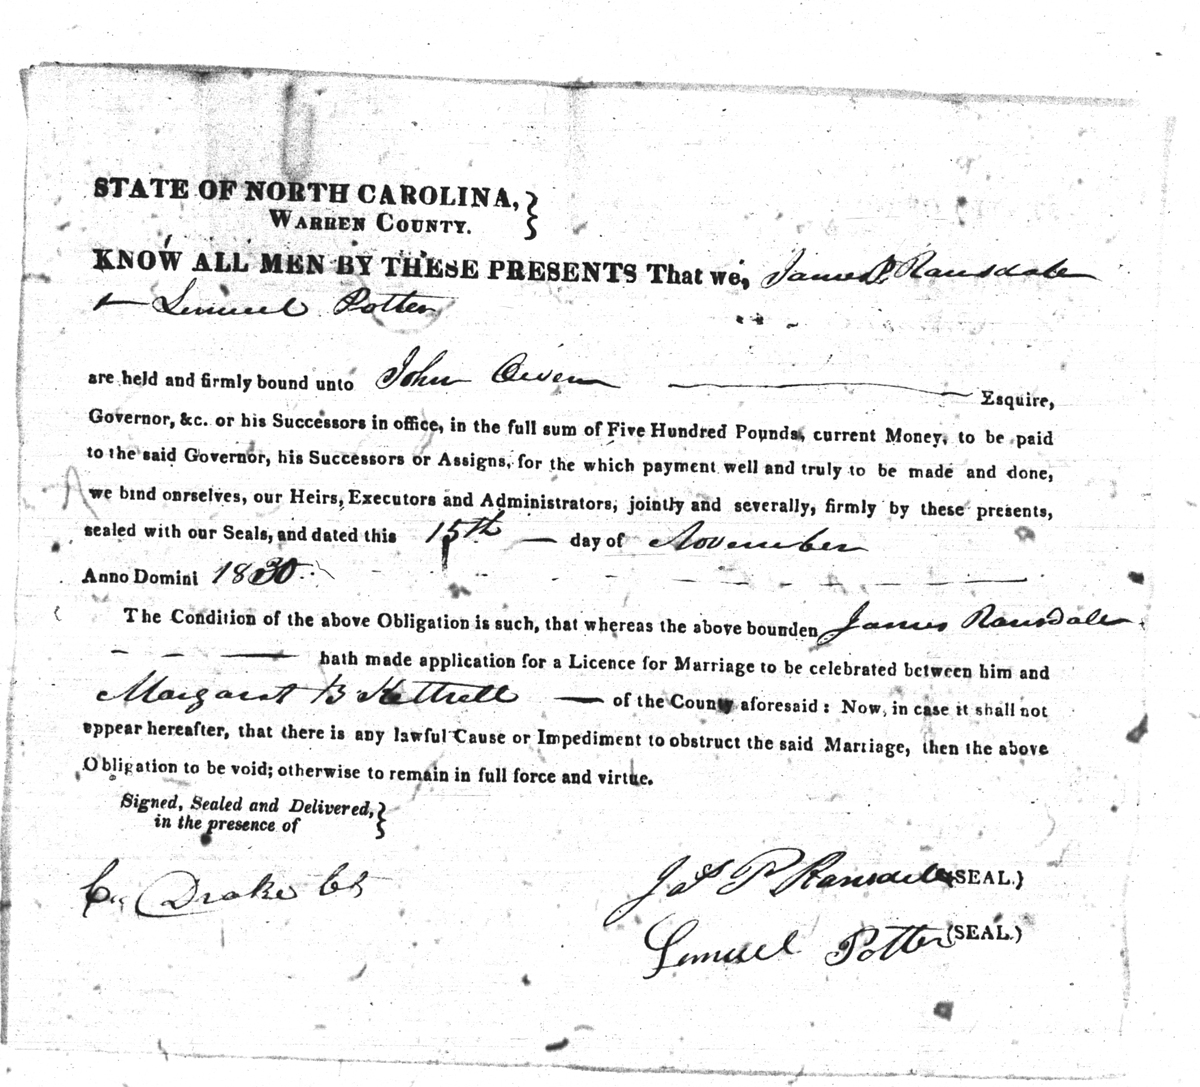 STATE OF NORTH CAROLINA, }
WARREN COUNTY.
KNOW ALL MEN BY THESE PRESENTS That we, James P. Ransdale
& Lemuel Potter
are held and firmly bound unto John Owen Esquire,
Governor, &c. or his Successors in office, in the full sum of Five Hundred Pounds, current Money, to be paid
to the said Governor, his Successors or Assigns, for the which payment well and truly to be made and done,
we bind onrselves, our Heirs, Executors and Administrators, jointly and severally, firmly by these presents,
sealed with our Seals, and dated this 15th — day of November
Anno Domini 1830
The Condition of the above Obligation is such, that whereas the above bounden James Ransdale
hath made application for a Licence for Marriage to be celebrated between him and
Margarat B Kettrell — of the County aforesaid: Now, in case it shall not
appear hereafter, that there is any lawful Cause or Impediment to obstruct the said Marriage, then the above
Obligation to be void; otherwise to remain in full force and virtue.
Signed, Sealed and Delivered, }
in the presence of
C. Drake Clk
Jas P Ransdale (SEAL.)
Lemuel Potter (SEAL.)